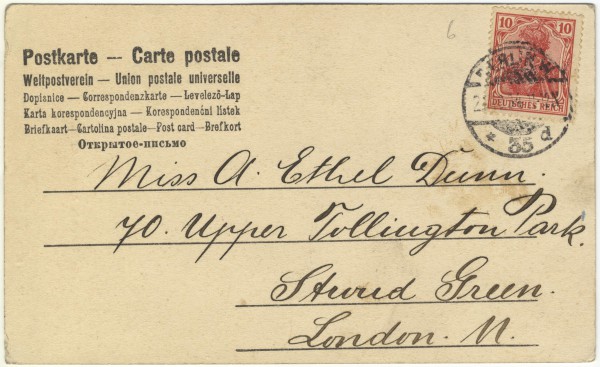 6
10 10
DEUTSCHES REICH
BERLIN W.
* 35 d
Postkarte — Carte postale
Weltpostverein — Union postale universelle
Dopisnice — Correspondenzkarte — Levelező-Lap
Karta korespondencyjna — Korespondenční lístek
Briefkaart — Cartolina postale — Post card — Brefkort
Открытое-письмо
Miss A. Ethel Dunn.
70. Upper Tollington Park.
Stroud Green.
London. N.